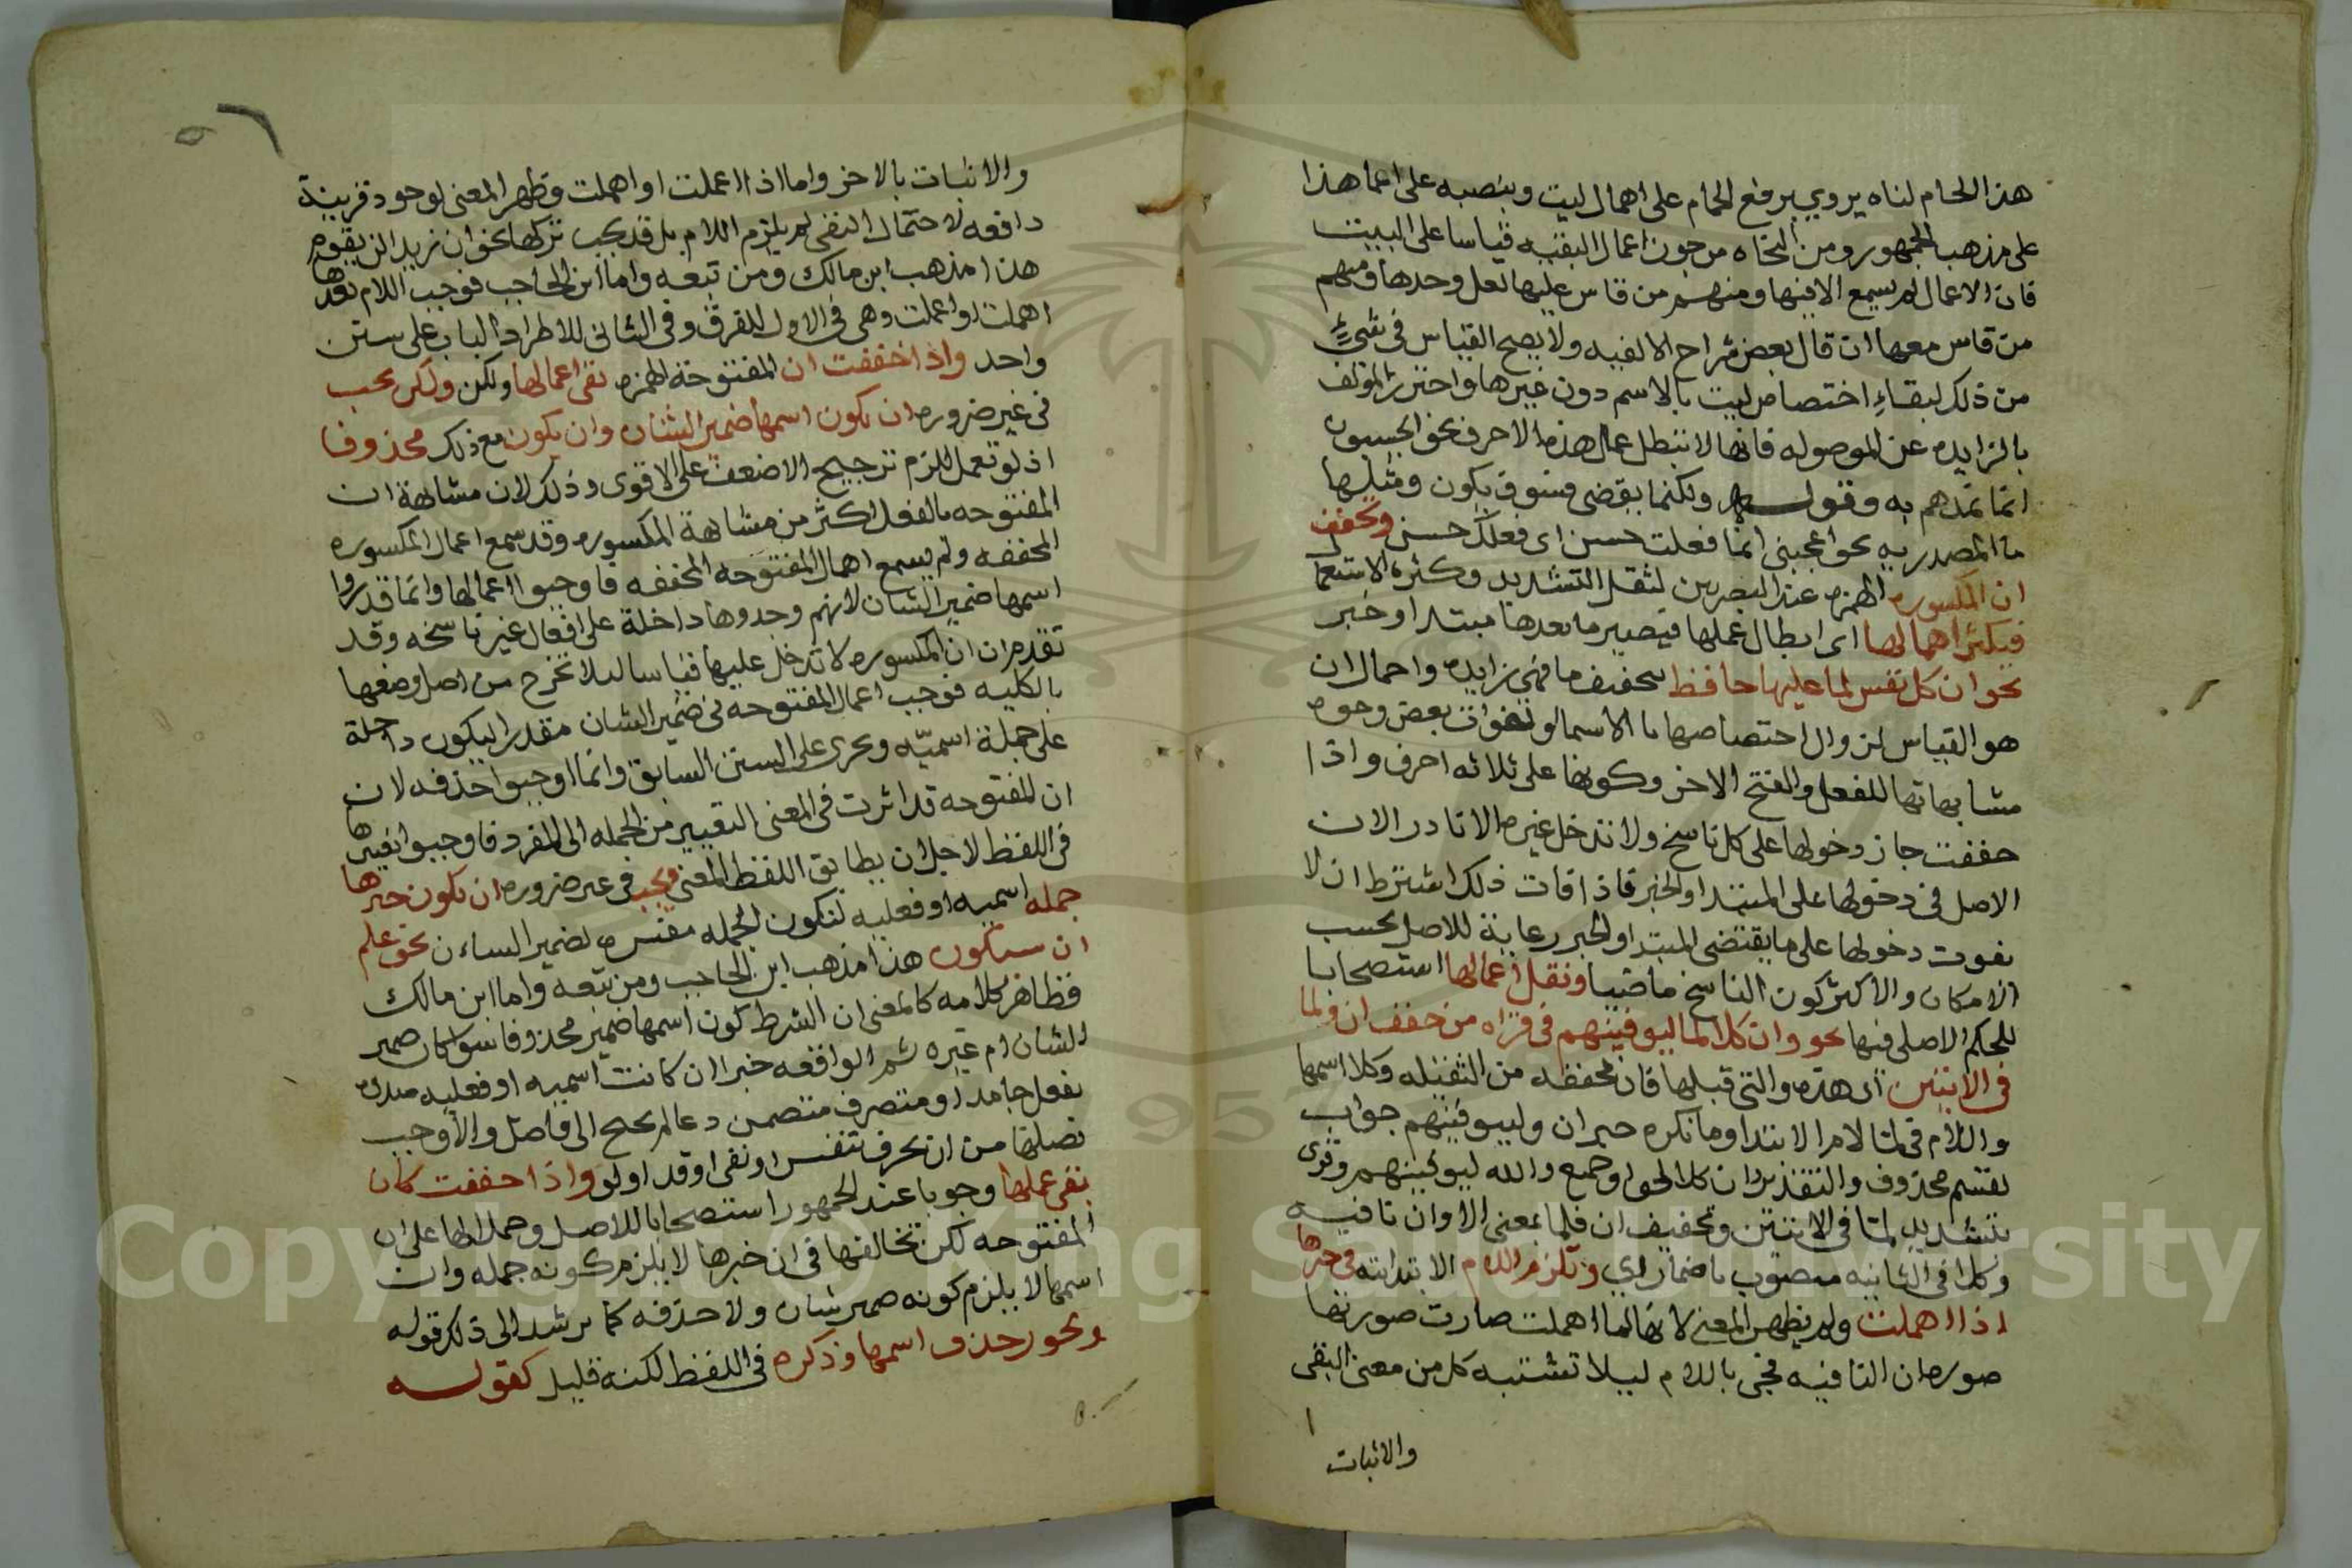 هذا الحمام لنا ه يروي برفع الحمام على اهمال ليت وبنصبه على اعما هذا
على مذهب الجمهور ومن النحاه من جوز اعمال البقيه قياسا على البيت
فان الاعمال لم يسمع الا فيها ومنهم من قاس عليها لعل وحدها ومنهم
من قاس معها ان قال بعض شراح الالفيه ولا يصح القياس في شيء
من ذلك لبقاء اختصاص ليت بالاسم دون غيرها واحترز المولف
بالزايده عن الموصوله فانها لا تبطل عمل هذه الاحرف نحو ايحسبون
انما نمدهم به وقوله ولكنما يقضى فسوف يكون ومثلها
ما المصدريه نحو اعجبني انما فعلت حسن اى فعلك حسن وتخفف
ان المكسوره الهمزه عند البصريين لثقل التشديد وكثرة الاستعما
فيكثر اهمالها اى ابطال عملها فيصير ما بعدها مبتدا وخبر
نحو ان كل نفس لما عليها حافظ بتخفيف ما فهي زايده واهمال ان
هو القياس لزوال اختصاصها بالاسما ولفوات بعض وجوه
مشابهاتها للفعل والفتح الاخر وكونها على ثلاثه احرف واذا
خففت جاز دخولها على كل ناسخ ولا تدخل غيره الا نادر الان
الاصل في دخولها على المبتدا والخبر فاذا فات ذلك اشترط ان لا
يفوت دخولها على ما يقتضى المبتدا والخبر رعاية للاصل بحسب
الامكان والاكثر كون الناسخ ماضيا ونقل اعمالها استصحابا
للحكم الاصلى فيها نحو وان كلا لما ليوفينهم في قراه من خفف ان ولما
في الايتين اى هذه والتى قبلها فان مخففه من الثقيله وكلا اسمها
واللام في لما لام الابتدا وما نكره خبر ان وليوفينهم جواب
لقسم محذوف والتقدير وان كلا لخلق او جمع والله ليوفينهم وقرى
بتشديد لما في الايتين وتخفيف ان فلما بمعنى الا وان نافيه
وكلا في الثانيه منصوب باضمار ارى وتلزم اللام الابتدايه في خبرها
اذا اهملت ولم يظهر المعنى لانها لما اهملت صارت صورتها
صوره ان النافيه فجى باللام ليلا تشتبه كل من معنى النفى
والاثبات
والاثبات بالاخر واما اذا اعملت او اهملت وظهر المعنى لوجود قرينة
دافعه لاحتمال النفى لم يلزم اللام بل قد يجب تركها نحو ان زيد لن يقوم
هذا مذهب ابن مالك ومن تبعه واما ابن الحاجب فوجب اللام بعدها
اهملت او اعملت وهى في الاول للفرق وفى الثانى للاطراد الباب على سنن
واحد واذا خففت ان المفتوحة الهمزه بقى اعمالها ولكن ولكن يجب
في غير ضروره ان يكون اسمها ضمير الشان وان يكون مع ذلك محذوفا
اذ لو تعمل للزم ترجيح الاضعف على الاقوى وذلك لان مشابهة ان
المفتوحه بالفعل اكثر من مشابهة المكسوره وقد سمع اعمال المكسوره
المخففه ولم يسمع اهمال المفتوحه المخففه فاوجبوا اعمالها وانما قدروا
اسمها ضمير الشان لانهم وجدوها داخلة على افعال غير ناسخه وقد
تقدم ان ان المكسوره لا تدخل عليها قياسا ليلا تخرج من اصل وضعها
بالكليه فوجب اعمال المفتوحه في ضمير الشان مقدرا ليكون داخلة
على جملة اسميّه وتجرى على السنن السابق وانما اوجبوا حذفه لان
ان المفتوحه قد اثرت في المعنى التغيير من الجمله الى المفرد فاوجبوا تغييرها
في اللفظ لاجل ان يطابق اللفظ المعنى ويجب في غير ضروره ان يكون خبرها
جمله اسميه او فعليه لتكون الجمله مفسره لضمير الشان نحو علم
ان سيكون هذا مذهب ابن الحاجب ومن تبعه واما ابن مالك
فظاهر كلامه كالمغنى ان الشرط كون اسمها ضمير محذوفا سوا كان ضمير
الشان ام غيره ثم الواقعه خبرا ان كانت اسميه او فعليه مبدوه
بفعل جامد او متصرف متضمن دعا لم يحتج الى فاصل والا وجب
فصلها من ان بحرف تنفيس او نفى او قد او لو واذا خففت كان
بقى عملها وجوبا عند الجمهور استصحابا للاصل وحملا لها على ان
المفتوحه لكن تخالفها في ان خبرها لا يلزم كونه جمله وان
اسمها لا يلزم كونه ضمير شان ولا حذفه كما يرشد الى ذلك قوله
ويجوز حذف اسمها وذكره في اللفظ لكنه قليل كقوله
Copyright © King Saud University
1957